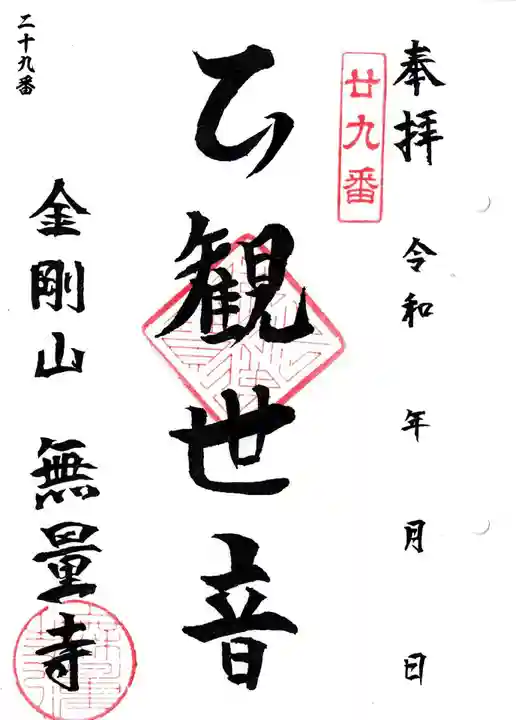 奉拝 令和 年 月 日
廿九番
観世音
金剛山 無量寺
二十九番